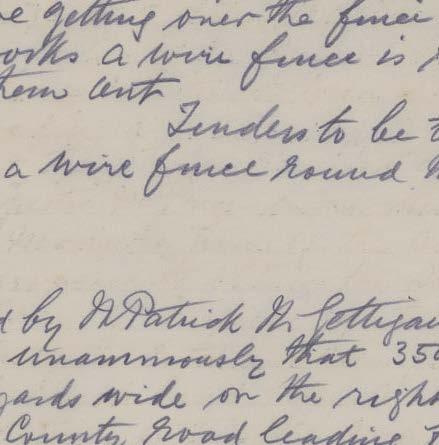 e getting over the fence
ooks a wire fence is
them out
Tenders to be t
a wire fence round
d by Mr Patrick McGettigan
unanimously that 350
yards wide on the right
County road leading